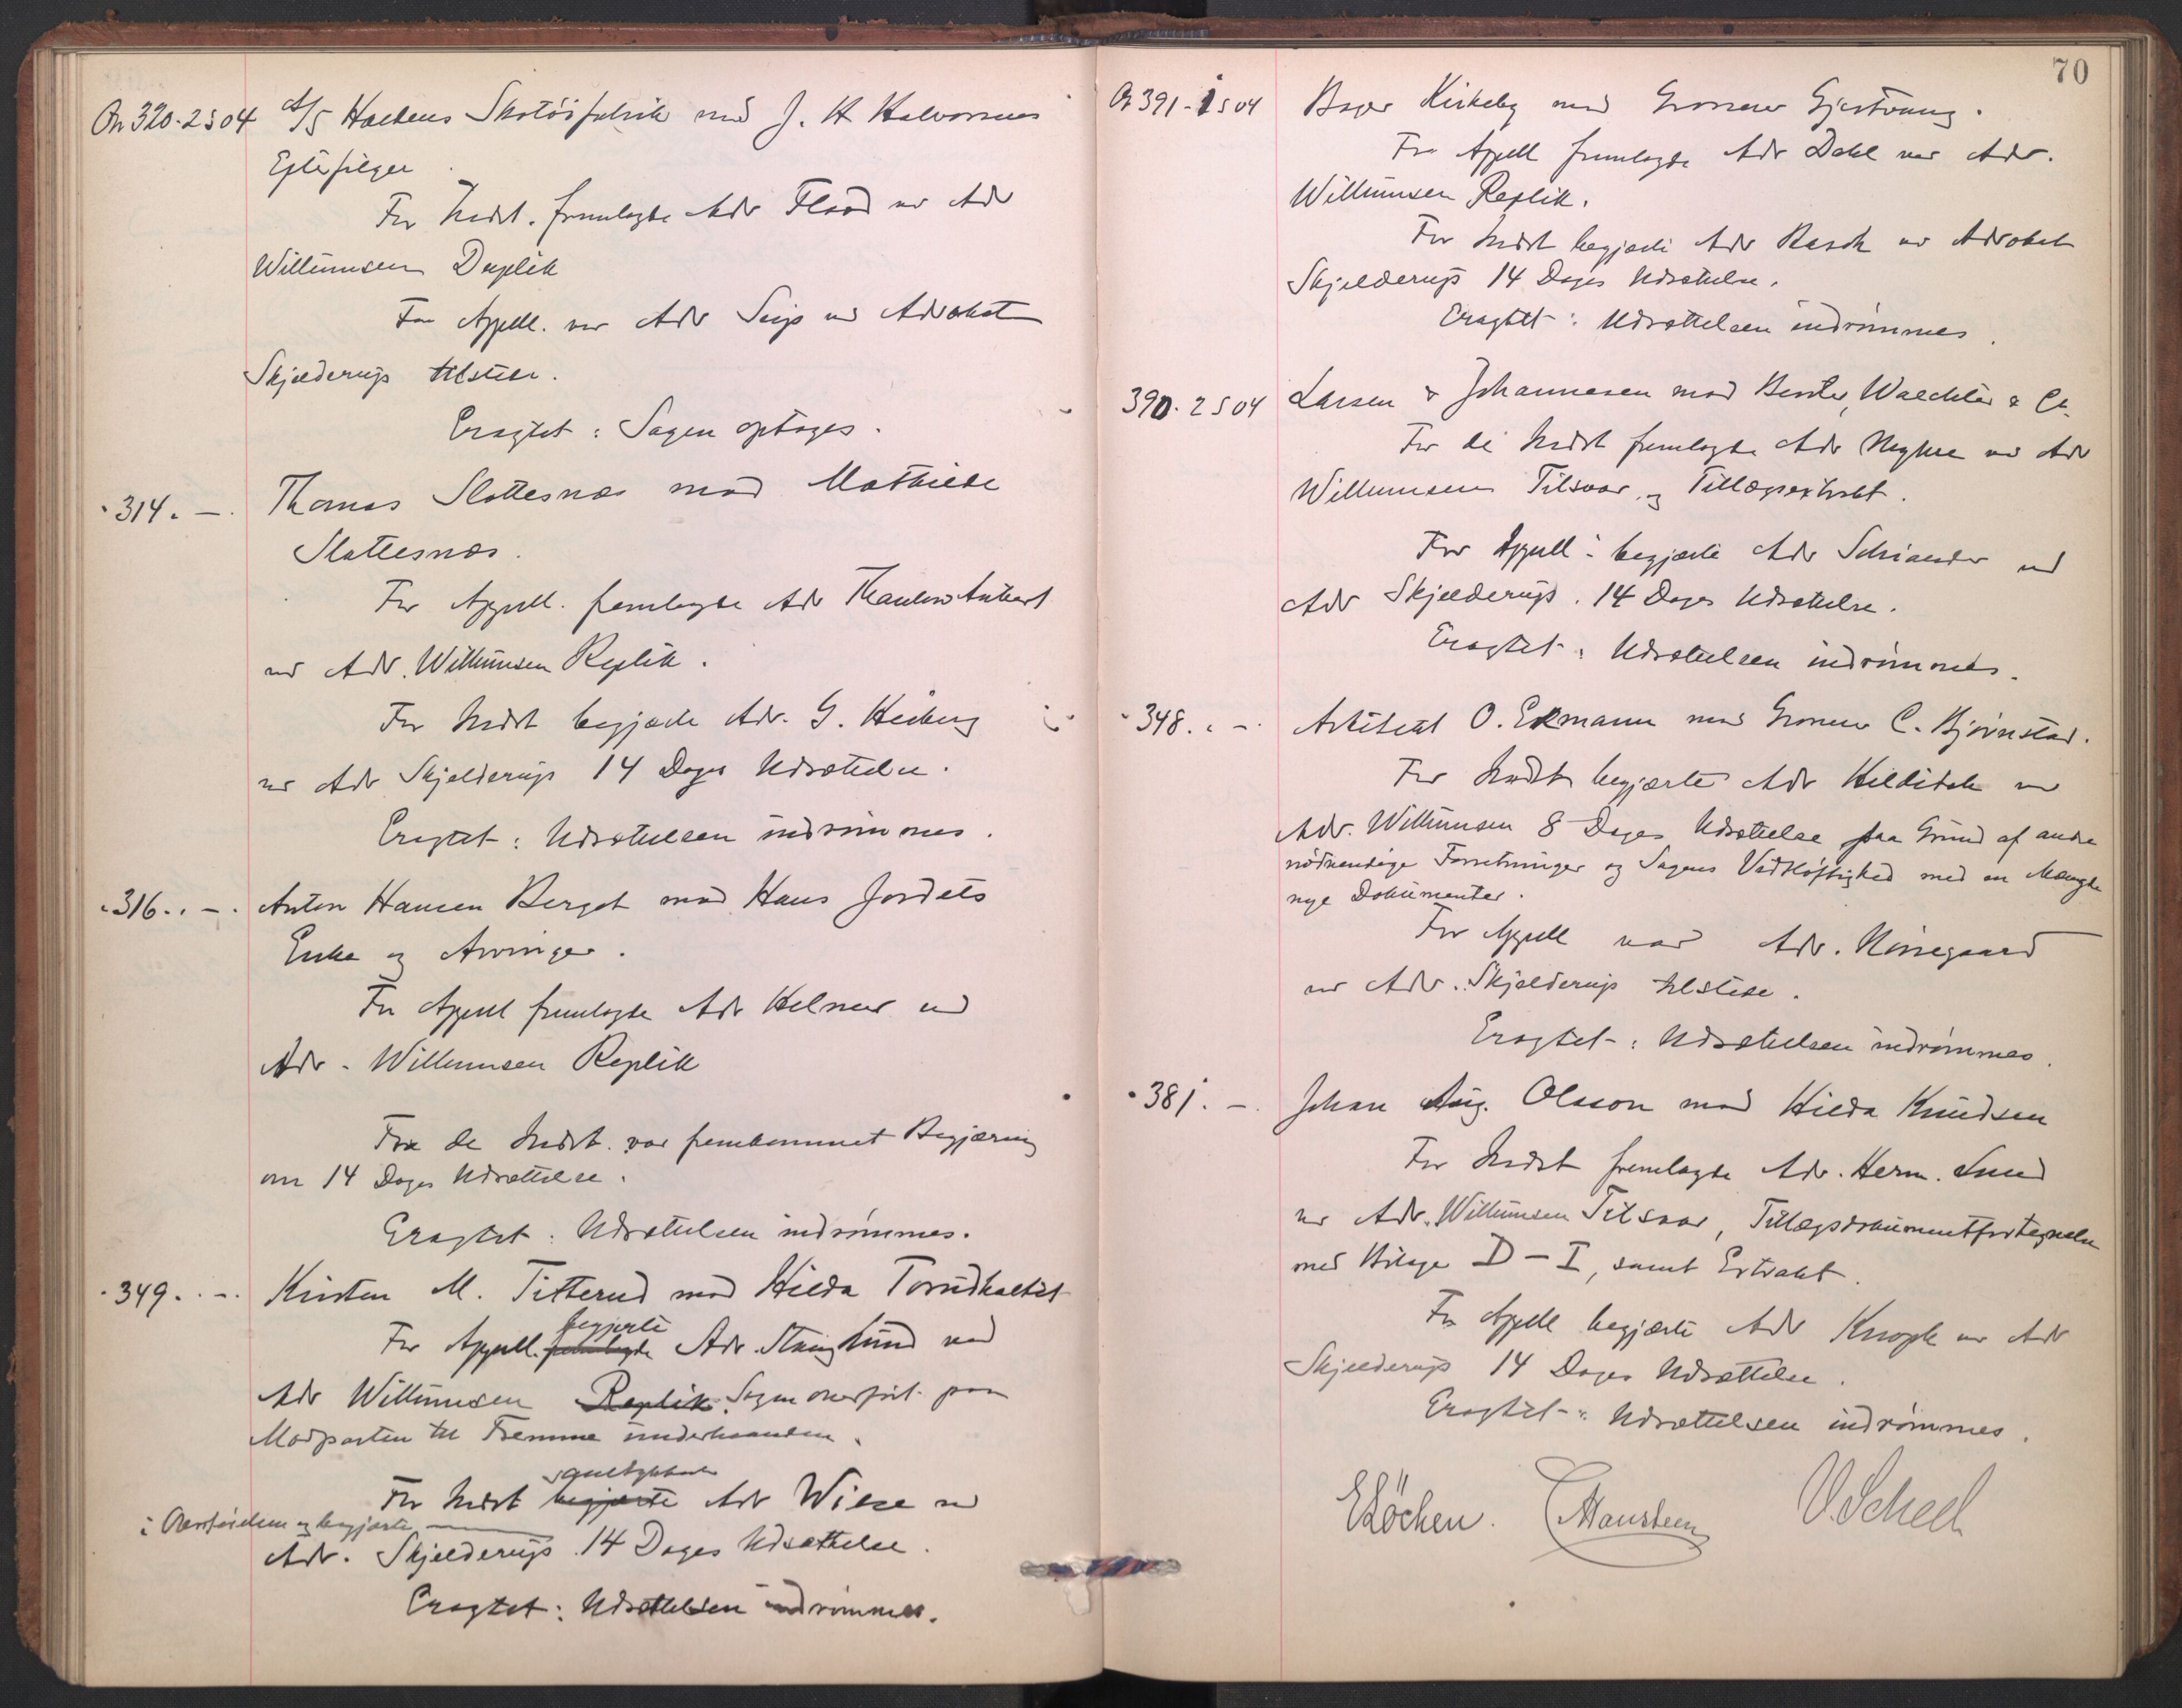 On 320-2 S 04 A/S Holtens Skotöifabrik mod J. H. Halvorsens
Efterfølger
For Indst. fremlagde Adv Flood ved Adv
Willumsen Duplik
For Appell. var Adv Seip ved Advokat
Skjelderup tilstede.
Eragtet: Sagen optages.
" 314. — Thomas Slottesnæs mod Mathilde
Slattesnæs.
For Appell. fremlagde Adv Thaulow Aubert
ved Adv. Willumsen Replik.
For Indst begjærte Adv. G. Heiberg
ved Adv Skjelderup 14 Dages Udsættelse.
Eragtet: Udsættelsen indrømmes.
" 316. — Anton Hansen Berget mod Hans Jordets
Enke og Arvinger.
For Appell fremlagde Adv Helmer ved
Adv. Willumsen Replik
Fra de Indst. var fremkommet Begjæring
om 14 Dages Udsættelse.
Eragtet: Udsættelsen indrømmes.
" 349. — Kirsten M. Titterud mod Hilda
begjærte
For Appell. fremlagde Adv. Stang Lund ved
Adv Willumsen Replik. Sagen overført paa
Modparten til Fremme underhaanden.
samtykkede
For Indst begjærte Adv Wiese ved
i Overførelsen og begjærte
Adv. Skjelderup 14 Dages Udsættelse.
Eragtet: Udsættelsen indrømmes.
70
On 391-1 S 04 Bager Kirkeby mod Grosserer Gjestvang.
For Appell fremlagde Adv Dahl ved Adv.
Willumsen Replik.
For Indst begjærte Adv Rasch ved Advokat
Skjelderup 14 Dages Udsættelse.
Eragtet: Udsættelsen indrømmes.
390-2 S 04 Larsen & Johannesen mod Waechter & Co.
For de Indst fremlagde Adv ved Adv
Willumsen Tilsvar og Tillægsextrakt.
For Appell: begjærte Adv Schiander ved
Adv Skjelderup. 14 Dages Udsættelse.
Eragtet: Udsættelsen indrømmes.
" 348. — Arkitekt O. Ekmann mod Grosserer C. Bjørnstad.
For Indst begjærte Adv Hilditch ved
Adv. Willumsen 8 Dages Udsættelse paa Grund af andre
nödvendige Forretninger og Sagens Vidtløftighed med en Mængde
nye Dokumenter.
For Appell var Adv. Nörregaard
ved Adv. Skjelderup tilstede.
Eragtet: Udsættelsen indrømmes.
" 381. — Johan Aug. Olsson mod Hilda Knudsen
For Indst fremlagde Adv. Herm. Lund
ved Adv. Willumsen Tilsvar, Tillægsdokumentfortegnelse
med Bilage D — I, samt Extrakt.
For Appell begjærte Adv Knoph ved Adv
Skjelderup 14 Dages Udsættelse.
Eragtet: Udsættelsen indrømmes.
E Löchen. Hansteen V. Scheel